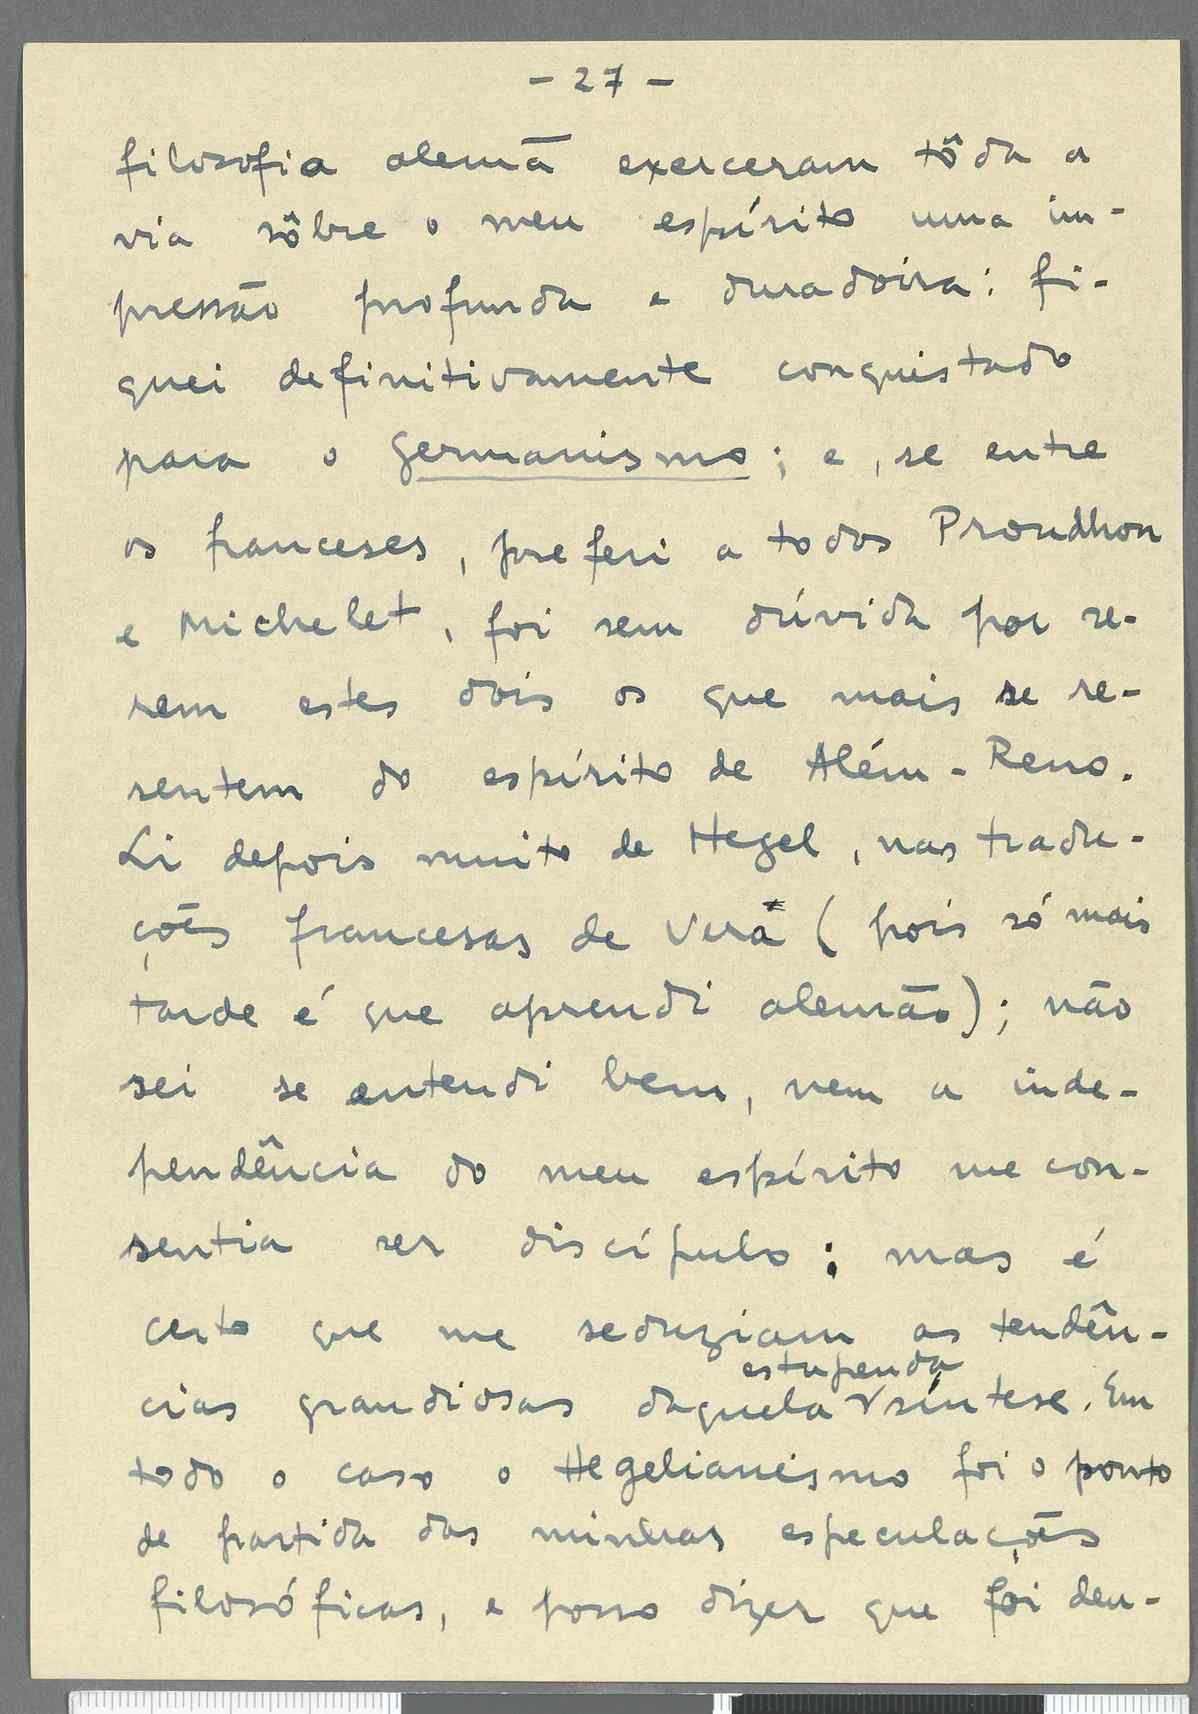 - 27 -
filosofia alemã exerceram tôda a
via sôbre o meu espírito uma im-
pressão profunda e duradoira: fi-
quei definitivamente conquistado
para o Germanismo; e, se entre
os franceses, preferi a todos Proudhon
e Michelet, foi sem dúvida por se-
rem estes dois os que mais se re-
sentem do espírito de Além-Reno.
Li depois muito de Hegel, nas tradu-
ções francesas de Vera (pois só mais
tarde é que aprendi alemão); não
sei se entendi bem, nem a inde-
pendência do meu espírito me con-
sentia ser discípulo: mas é
certo que me seduziam as tendên-
estupenda
cias grandiosas daquela síntese. Em
todo o caso o Hegelianismo foi o ponto
de partida das minhas especulações
filosóficas, e posso dizer que foi den-